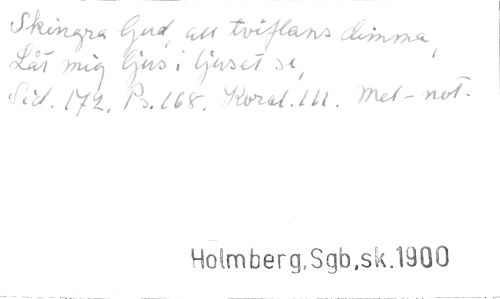 Skingra Gud, all tviflans dimma,
Låt mig ljus i ljuset se,
Sid. 172. Ps. 168. Koral. 111. Mel-not.
Holmberg,Sgb,sk.1900